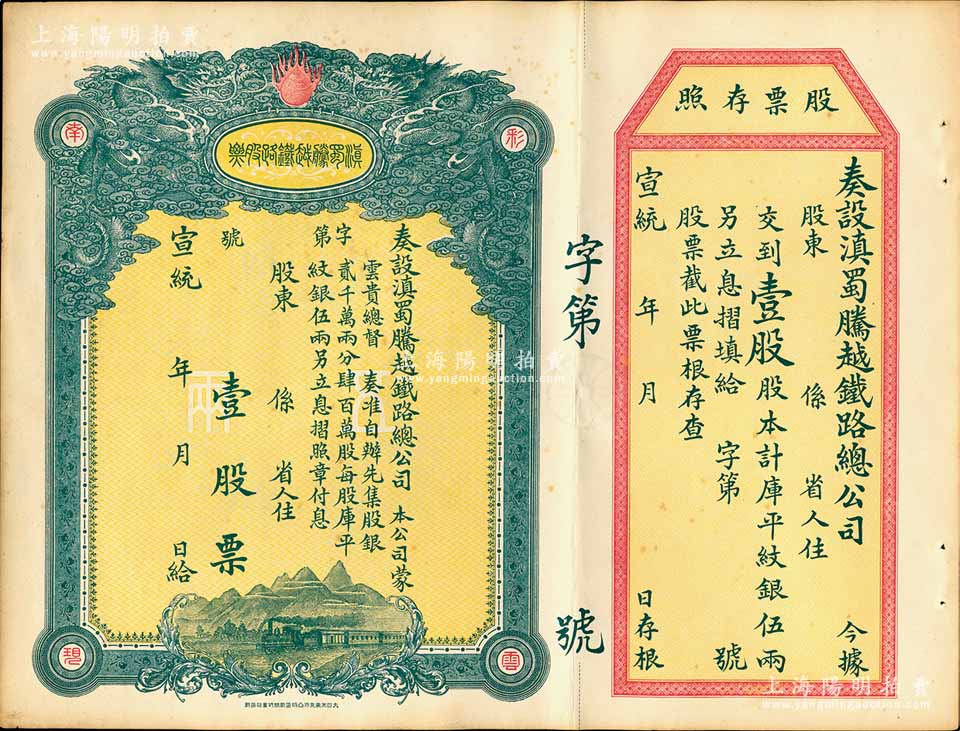 上海陽明拍賣
www.yangmingauction.com
股票存照
奏設滇蜀騰越鐵路總公司 今據
股東 係 省人住
交到壹股股本計庫平紋銀伍兩
另立息摺填給 字第 號
股票截此票根存查
宣統 年 月 日存根
字第 號
滇蜀騰越鐵路股票
彩
南
雲
現
奏設滇蜀騰越鐵路總公司 本公司蒙
雲貴總督 奏准自辦先集股銀
貳千萬兩分肆百萬股每股庫平
紋銀伍兩另立息摺照章付息
字第
股東 係 省人住
號
壹股票
宣統 年 月 日給
伍
兩
上海陽明拍賣
www.yangmingauction.com
上海陽明拍賣
www.yangmingauction.com